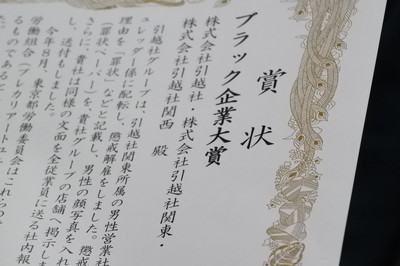 賞状
ブラック企業大賞
株式会社引越社・株式会社引越社関東・
株式会社引越社関西 殿
引越社グループは、引越社関東所属の男性営業社
ュレッダー係に配転し、懲戒解雇をしました。懲戒
理由を「罪状」などと記載し、男性の顔写真を入れ
(罪状ペーパー)を、貴社グループの店舗へ掲示しま
さらに、貴社は同様の文面を全従業員に送る社内報
し、送付もしました。
今年8月、東京都労働委員会はこれらの
労働組合(プレカリアートユ
るものであると